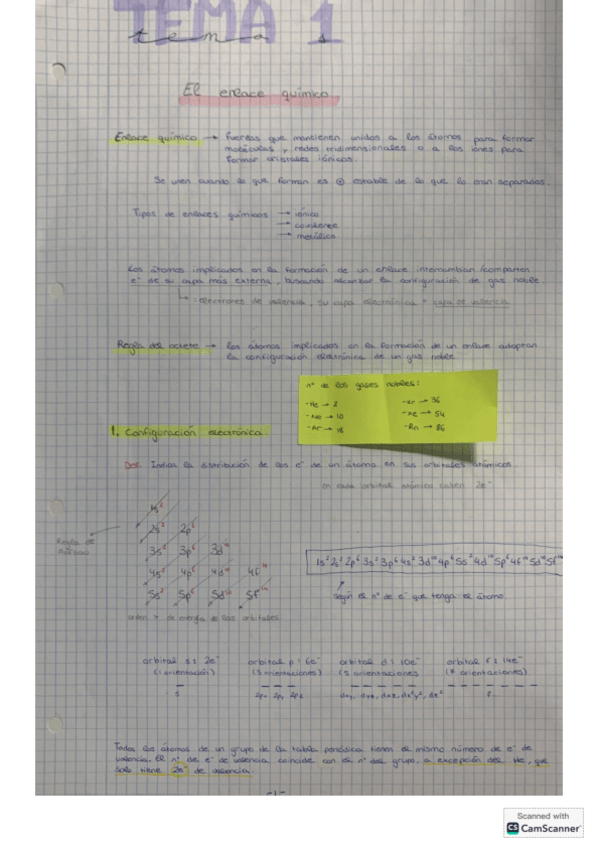 TEMA 1
tema 1
El enlace químico
Enlace químico → fuerzas que mantienen unidos a los átomos para formar
moléculas y redes tridimensionales o a los iones para
formar cristales iónicos.
Se unen cuando lo que forman es ⊕ estable de lo que lo eran separados.
Tipos de enlaces químicos → iónico
→ covalente
→ metálico
Los átomos implicados en la formación de un enlace intercambian/comparten
e⁻ de su capa más externa, buscando alcanzar la configuración de gas noble.
↳ : electrones de valencia, su capa electrónica = capa de valencia
Regla del octeto → los átomos implicados en la formación de un enlace adoptan
la configuración electrónica de un gas noble
nº de los gases nobles:
-He → 2
-Ne → 10
-Ar → 18
-Kr → 36
-Xe → 54
-Rn → 86
1. Configuración electrónica
Def. Indica la distribución de los e⁻ de un átomo en sus orbitales atómicos.
en cada orbital atómico caben 2e⁻
Regla de
1s²
2s² 2p⁶
3s² 3p⁶ 3d¹⁰
4s² 4p⁶ 4d¹⁰ 4f¹⁴
5s² 5p⁶ 5d¹⁰ 5f¹⁴
orden de energía de los orbitales
1s² 2s² 2p⁶ 3s² 3p⁶ 4s² 3d¹⁰ 4p⁶ 5s² 4d¹⁰ 5p⁶ 4f¹⁴ 5d¹⁰ 5f¹⁴
según el nº de e⁻ que tenga el átomo.
orbital s: 2e⁻
(1 orientación)
s
orbital p: 6e⁻
(3 orientaciones)
2px 2py 2pz
orbital d: 10e⁻
(5 orientaciones)
dxy, dyz, dxz, dx²y², dz²
orbital f: 14e⁻
(7 orientaciones)
f
Todos los átomos de un grupo de la tabla periódica tienen el mismo número de e⁻ de
valencia. El nº de e⁻ de valencia coincide con el nº del grupo, a excepción del He, que
solo tiene 2e⁻ de valencia.
-1-
Scanned with
CS CamScanner